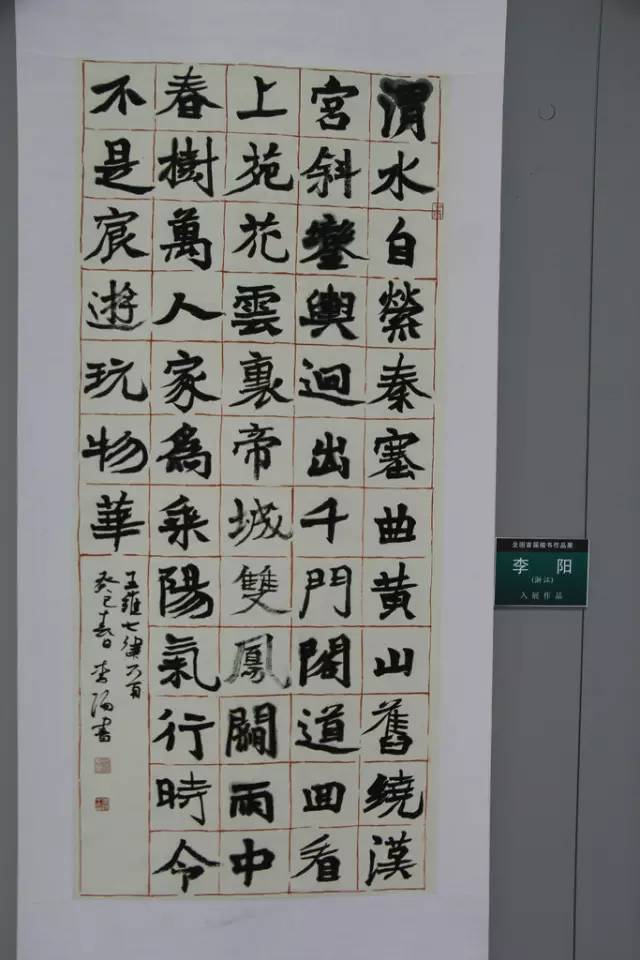 渭水自縈秦塞曲黄山舊繞漢
宮斜鑾輿迥出千門閣道回看
上苑花雲裏帝城雙鳳闕雨中
春樹萬人家為乘陽氣行時令
不是宸遊玩物華
王維七律首
癸巳春日李陽書
全国首届楷书作品展
李 阳
(浙江)
入展作品